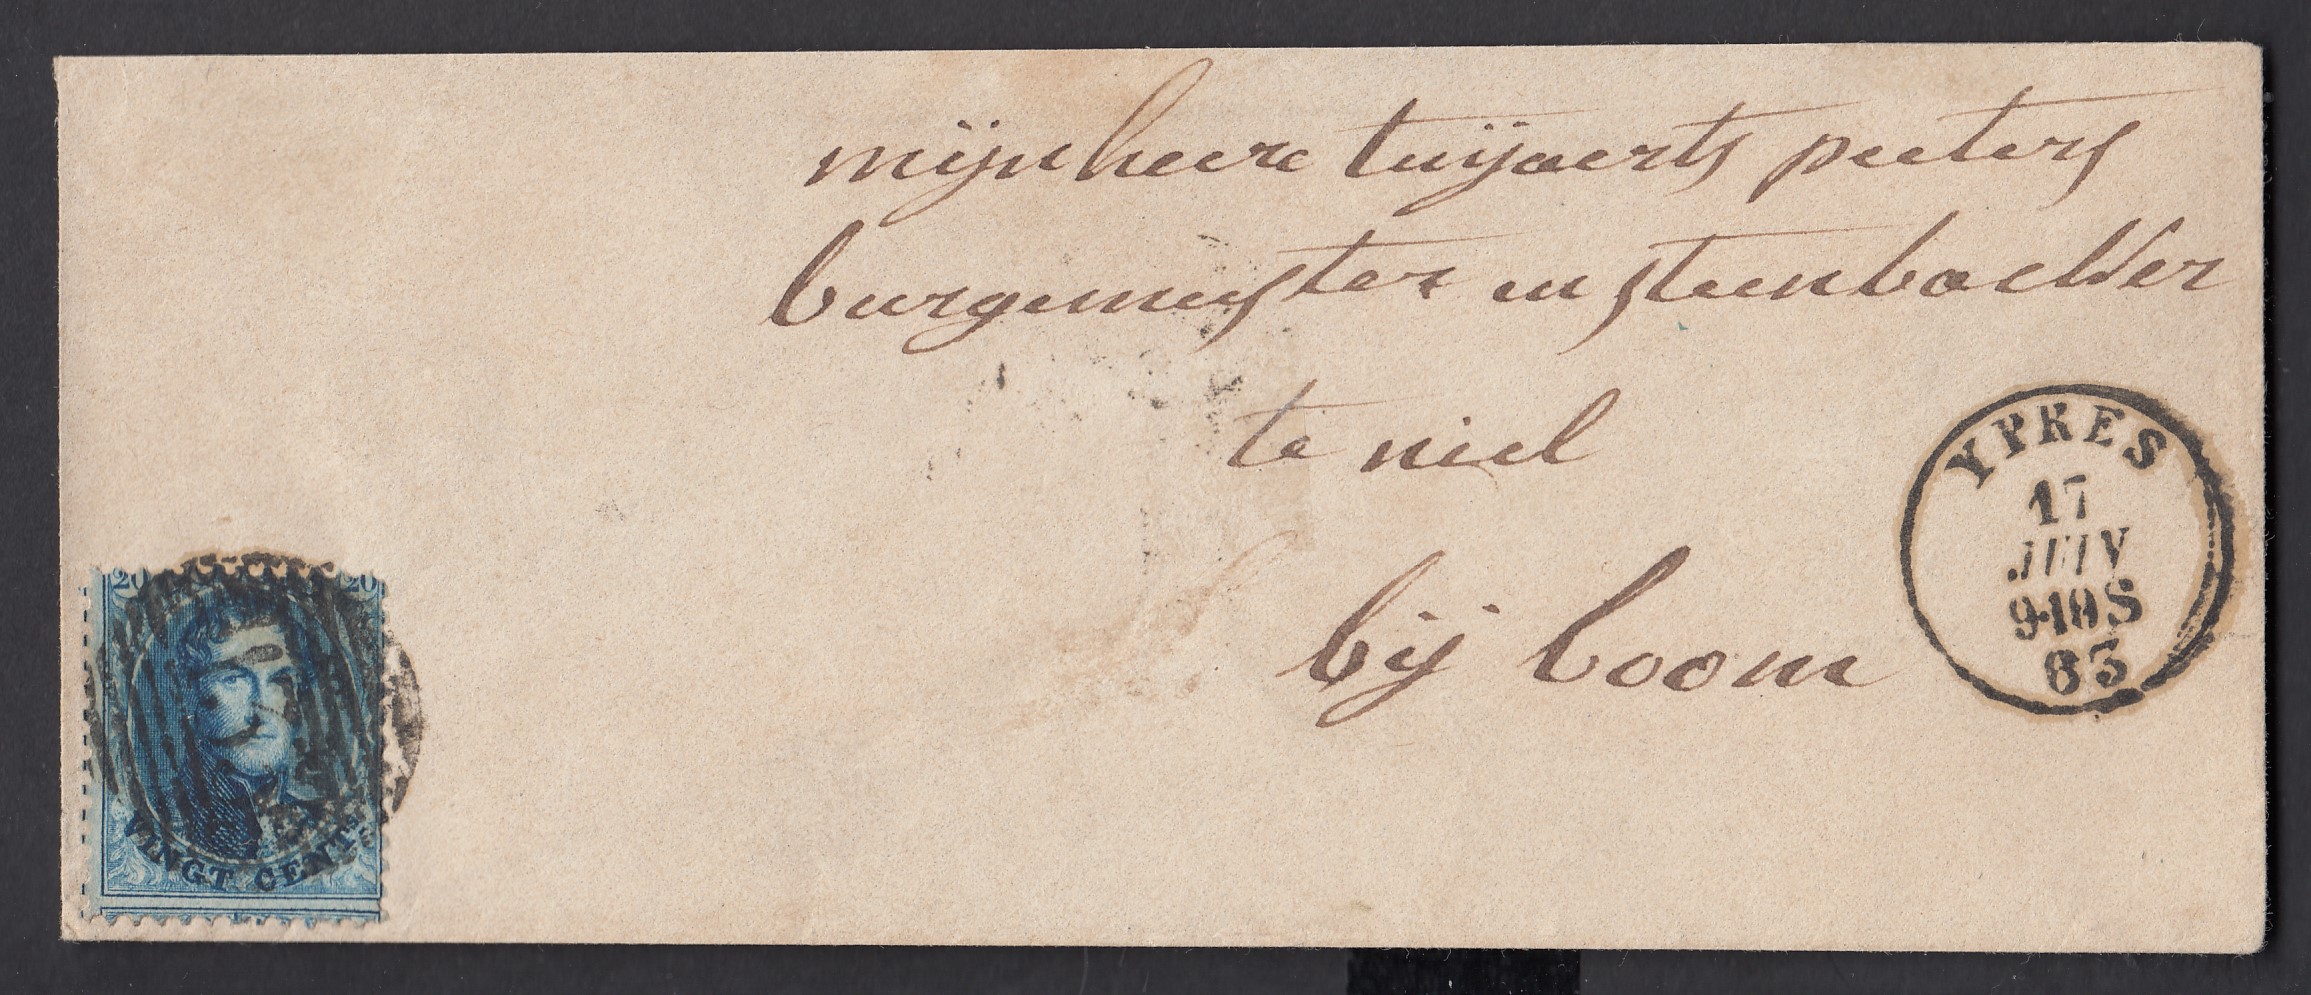 mijnheere tuijaerts peeters
burgemeyster en steenbacker
te niel
bij boom
YPRES
17
JUIN
9-10S
63
20 20
VINGT CENTS